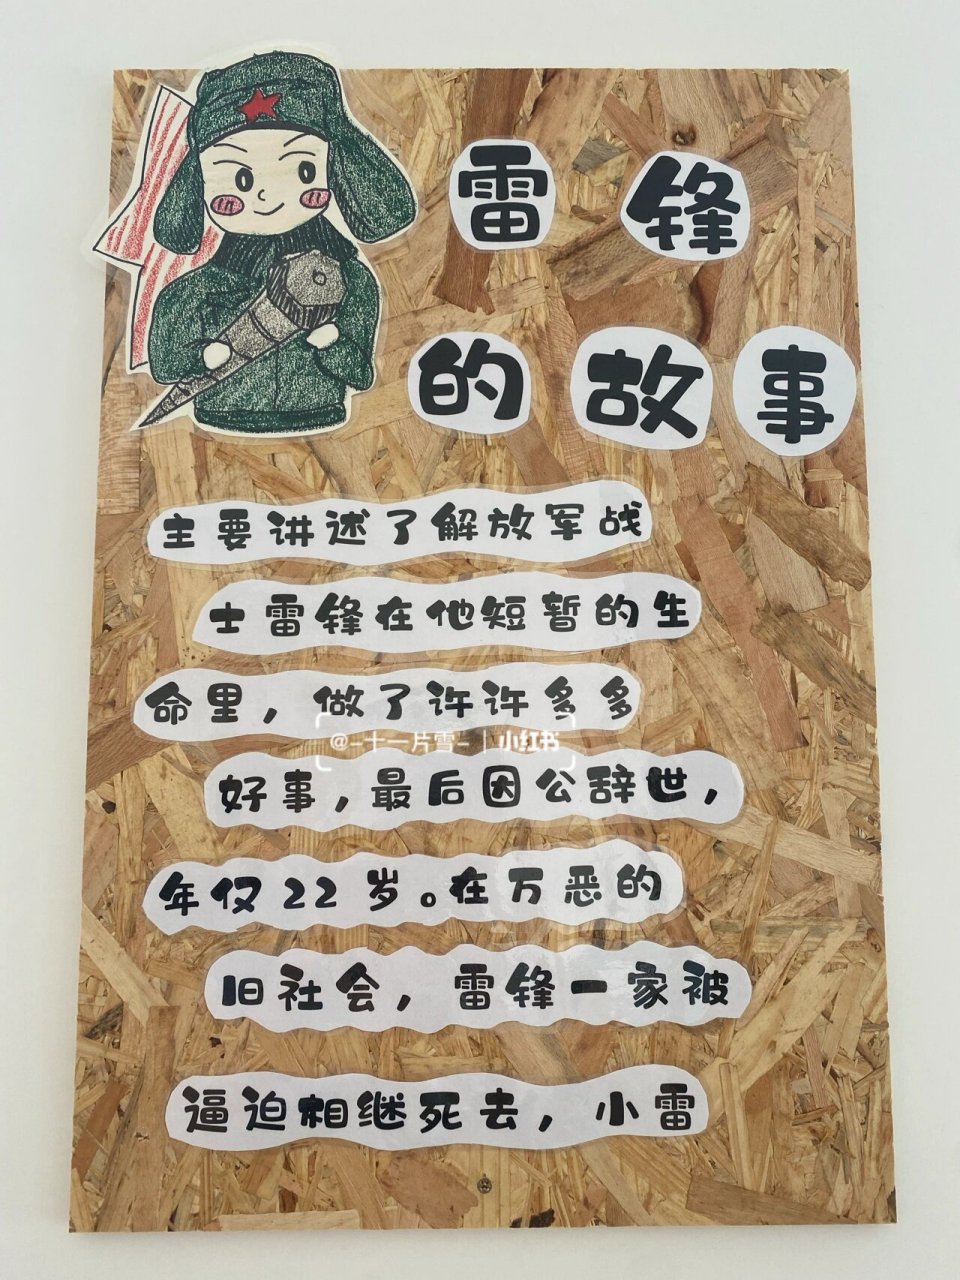 雷锋
的故事
主要讲述了解放军战
士雷锋在他短暂的生
命里，做了许许多多
@-十一片雪- | 小红书
好事，最后因公辞世，
年仅22岁。在万恶的
旧社会，雷锋一家被
逼迫相继死去，小雷